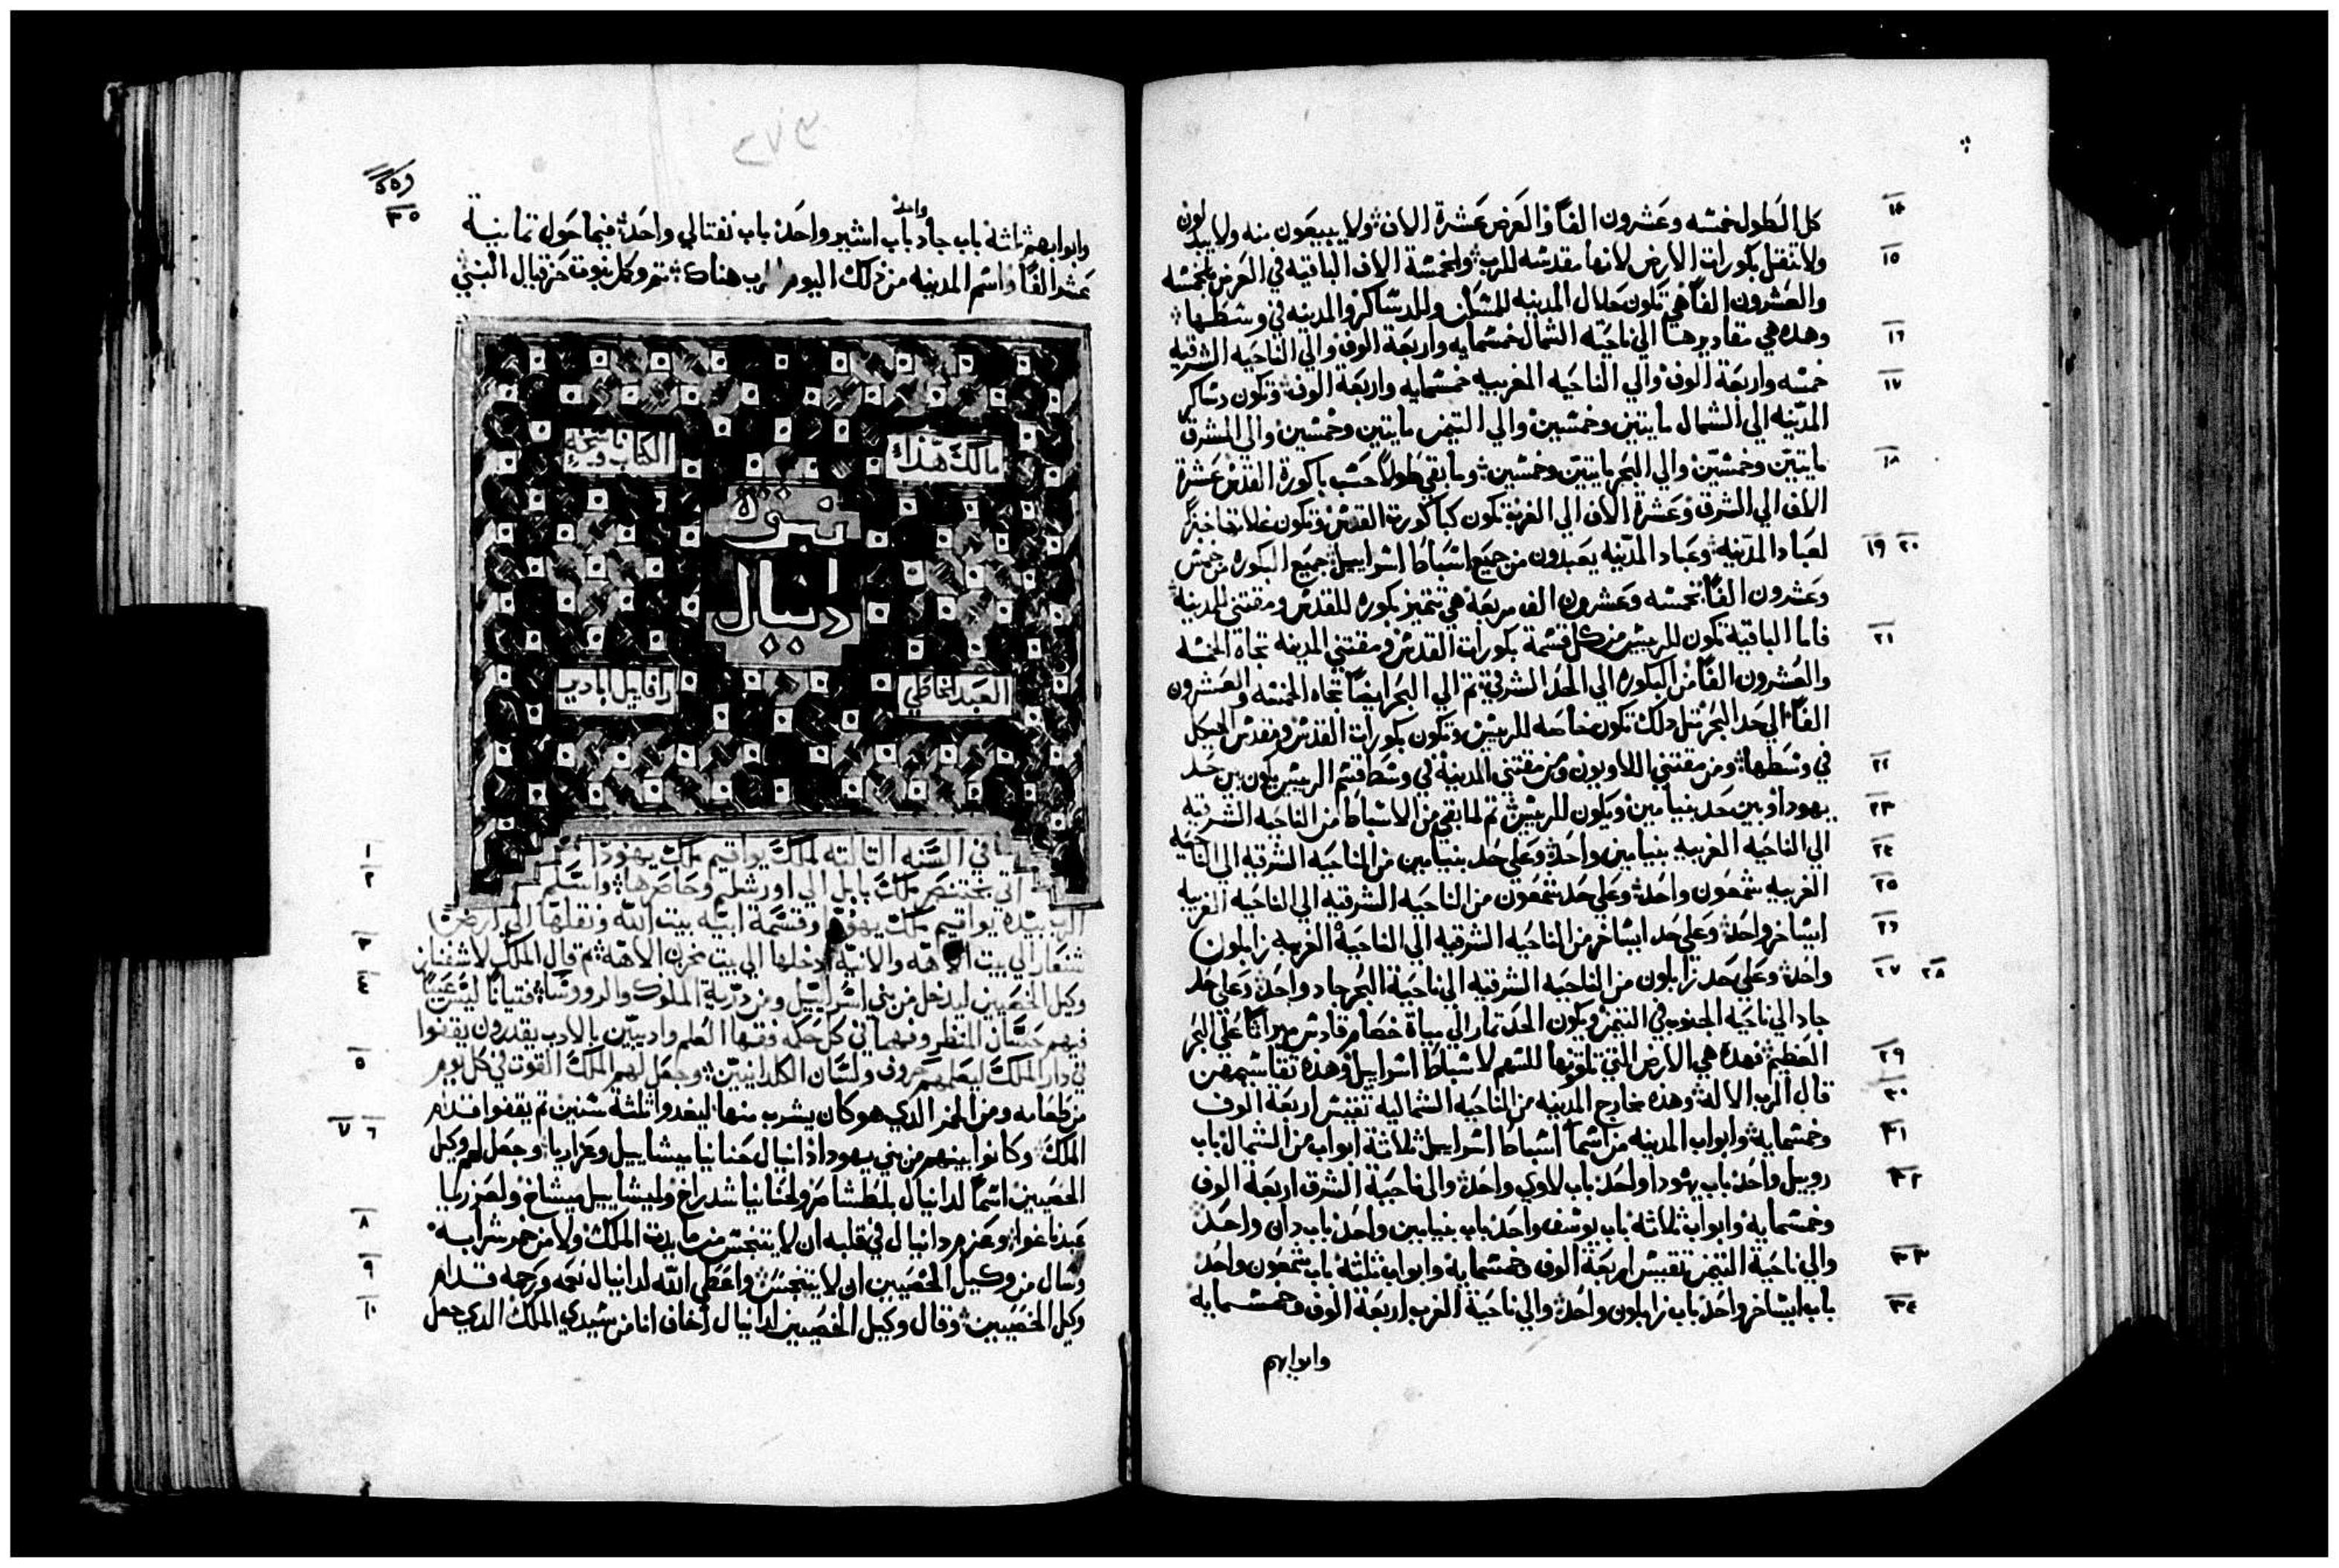 كل الطول خمسه وعشرون الفاً والعرض عشرة الاف ولا يبيعون منه ولا يبدلون
ولا تنقل بكورات الارض لانها مقدسه للرب والخمسة الاف الباقيه في العرض بالخمسه
والعشرون الفاً هي تكون حلال المدينه للمسكن وللدساكر والمدينه في وسطها
وهده هي مقاديرها الي ناحية الشمال خمسمايه واربعة الوف والي الناحيه الشرقيه
خمسه واربعة الوف والي الناحيه المغربيه خمسمايه واربعة الوف وتكون دساكر
المدينه الي الشمال مايتين وخمسين والي التيمن مايتين وخمسين والي المشرق
مايتين وخمسين والي البحر مايتين وخمسين وما بقي طولاً حسب باكورة القدس عشرة
الاف الي الشرق وعشرة الاف الي الغرب تكون كباكورت القدس وتكون غلاتها خبزاً
لعباد المدينه وعباد المدينه يعبدون من جميع اسباط اسراييل جميع البكوره من خمس
وعشرون الفاً بخمسه وعشرون الف مربعة هي تتميز بكوره للقدس ومقتني المدينة
فاما الباقية تكون للرييس من كل قسمة بكورات القدس ومقتني المدينه تجاة الخمسه
والعشرون الفاً من البكوره الي الحد الشرقي تم الي البحر ايضاً تجاه الخمسه والعشرون
الفاً الي حد البحر متل دلك تكون خاصه للرييس وتكون بكورات القدس ومقدس الهيكل
في وسطها ومن مقتني اللاويون ومن مقتني المدينة في وسط اقسم الرييس يكون بين حد
يهودا وبين حد بنيامين ويكون للرييس تم لما بقي من الاسباط من الناحيه الشرقيه
الي الناحيه الغربيه بنيامين واحد وعلي حد بنيامين من الناحيه الشرقيه الي الناحيه
الغربيه شمعون واحد وعلي حد شمعون من الناحيه الشرقيه الي الناحيه الغربيه
ايساخر واحد وعلي حد ايساخر من الناحيه الشرقيه الي الناحية الغربيه زابلون
واحد وعلي حد زابلون من الناحيه الشرقيه الي ناحية البحر جاد واحد وعلي حد
جاد الي ناحيه الجنوب في التيمن ويكون الحد تمار الي مياة خصام قادس ميراثاً علي البحر
العظيم فهده هي الارض التي تلقونها للسهم لاسباط اسراييل وهده تقاسيمهن
قال الرب الاله وهده مخارج المدينه من الناحيه الشماليه تقيس اربعة الوف
وخمسمايه وابواب المدينه من اسما اسباط اسراييل ثلاثة ابواب من الشمال باب
روبيل واحد باب يهودا واحد باب لاوي واحد والي ناحية الشرق اربعة الوف
وخمسمايه وابواب ثلاثه باب يوسف واحد باب بنيامين واحد باب دان واحد
والي ناحية التيمن تقيس اربعة الوف وخمسمايه وابواب ثلثه باب شمعون واحد
باب ايساخر واحد باب زابلون واحد والي ناحية الغرب اربعة الوف وخمسمايه
وابوابهم
١٤
١٥
١٦
١٧
١٨
١٩ ٢٠
٢١
٢٢
٢٣
٢٤
٢٥
٢٦
٢٧ ٢٨
٢٩
٣٠
٣١
٣٢
٣٣
٣٤
٣٥
وابوابهم ثلثة باب جاد واحد باب اشير واحد باب نفتالي واحد فيما حول تمانية
عشر الفاً واسم المدينه من دلك اليوم الرب هناك تم وكمل نبوت حزقيال النبي
مالك هذا
الكتاب وناسخه
نبوة
دانيال
العبد الخاطي
رافاييل
في السنه التالته لملك يواقيم ملك يهودا
اتي بختنصر ملك بابل الي اورشليم وحاصرها واسلم
الرب بيده يواقيم ملك يهودا وقسمة انية بيت الله ونقلها الي ارض
شنعار الي بيت الاهه والانية ادخلها الي بيت خزن الاهه تم قال الملك لاشفناز
وكيل الخصيين ليدخل من بني اسراييل ومن درية الملوك والروسا فتياناً ليس عيباً
فيهم حسان المنظر وفهما في كل حكمه فقها العلم واديبين بالادب يقدرون يقفوا
في دار الملك ليعلمهم حروف ولسان الكلدانيين وجعل لهم الملك القوت في كل يوم
من طعامه ومن الخمر الدي هو كان يشرب منها ليغدوا ثلثة سنين تم يقفوا قدام
الملك وكانوا بينهم من بني يهودا دانيال حنانيا ميشاييل وعزاريا وجعل لهم وكيل
الخصيين اسماً لدانيال بلطشاصر ولحنانيا شدراخ ولميشاييل ميشاخ ولعزريا
عبدناغوا وعزم دانيال في قلبه ان لا يتنجس من مايدت الملك ولا من خمر شرابه
وسال من وكيل الخصيين ان لا يتنجس واعطي الله لدانيال نعمه ورحمه قدام
وكيل الخصيين وقال وكيل الخصيين لدانيال اخاف انا من سيدي الملك الدي جعل
١
٢
٣
٤
٥
٦ ٧
٨
٩
١٠